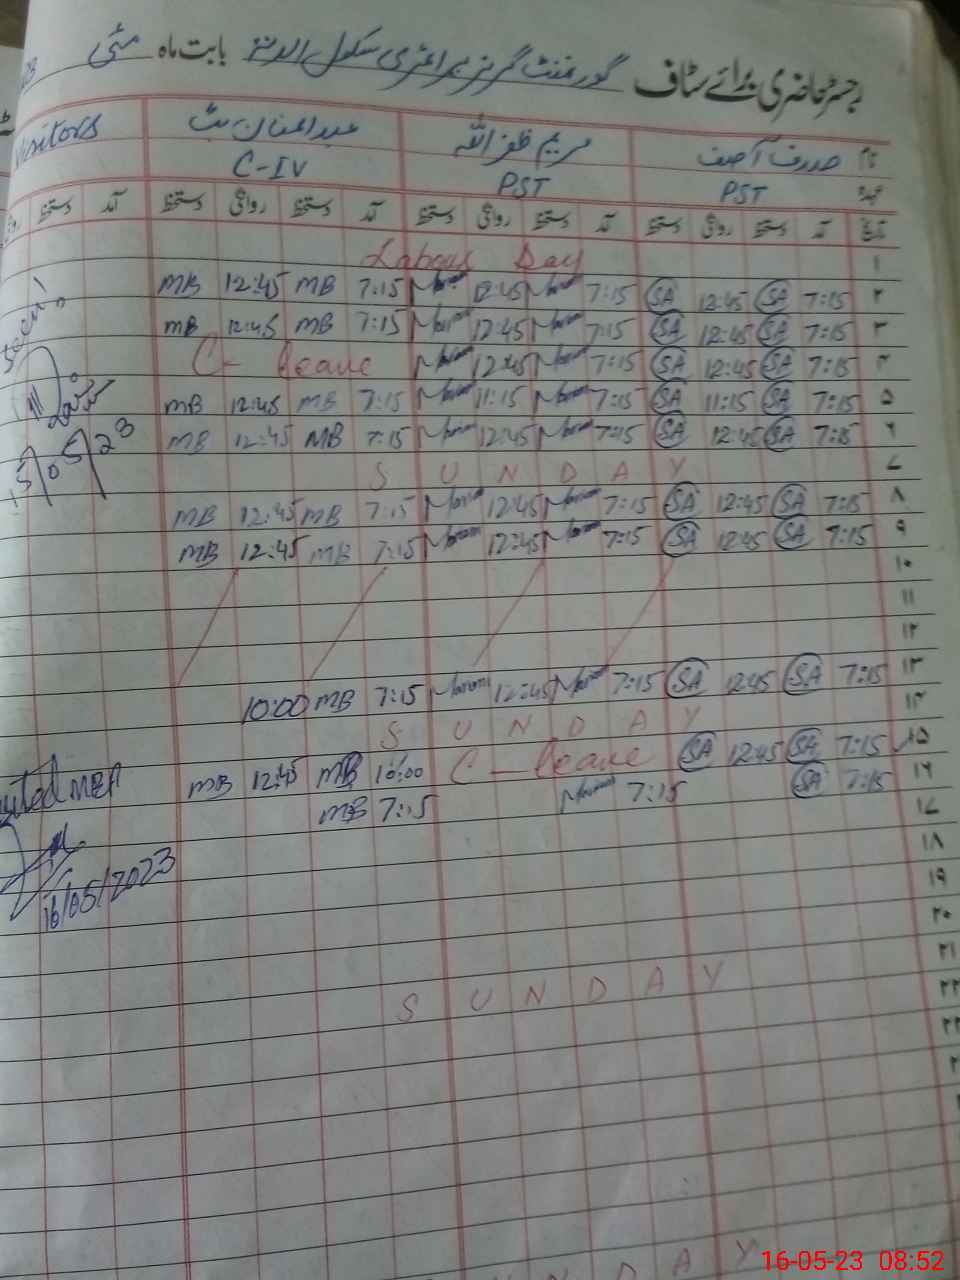 رجسٹر حاضری برائے سٹاف گورنمنٹ گرلز پرائمری سکول بابت ماہ مئی
نام صدف آصف مریم ظفراللہ عبدالمنان بٹ Visitors
عہدہ PST PST C-IV
تاریخ آمد دستخط روانگی دستخط آمد دستخط روانگی دستخط آمد دستخط روانگی دستخط آمد دستخط
۱ Labour Day
۲ 7:15 SA 12:45 SA 7:15 Maram 12:45 Maram 7:15 MB 12:45 MB
۳ 7:15 SA 12:45 SA 7:15 Maram 12:45 Maram 7:15 MB 12:45 MB
۴ 7:15 SA 12:45 SA 7:15 Maram 12:45 Maram C- leave
۵ 7:15 SA 11:15 SA 7:15 Maram 11:15 Maram 7:15 MB 12:45 MB
۶ 7:15 SA 12:45 SA 7:15 Maram 12:45 Maram 7:15 MB 12:45 MB
۷ SUNDAY
۸ 7:15 SA 12:45 SA 7:15 Maram 12:45 Maram 7:15 MB 12:45 MB
۹ 7:15 SA 12:45 SA 7:15 Maram 12:45 Maram 7:15 MB 12:45 MB
۱۰
۱۱
۱۲
۱۳ 7:15 SA 12:45 SA 7:15 Maram 12:45 Maram 7:15 MB 10:00
۱۴ SUNDAY
۱۵ 7:15 SA 12:45 SA C-leave 10:00 MB 12:45 MB
۱۶ 7:15 SA 7:15 Maram 7:15 MB
۱۷
۱۸
۱۹
۲۰
۲۱ SUNDAY
۲۲
۲۳
15/05/23
MEA
16/05/2023
NDAY
16-05-23 08:52